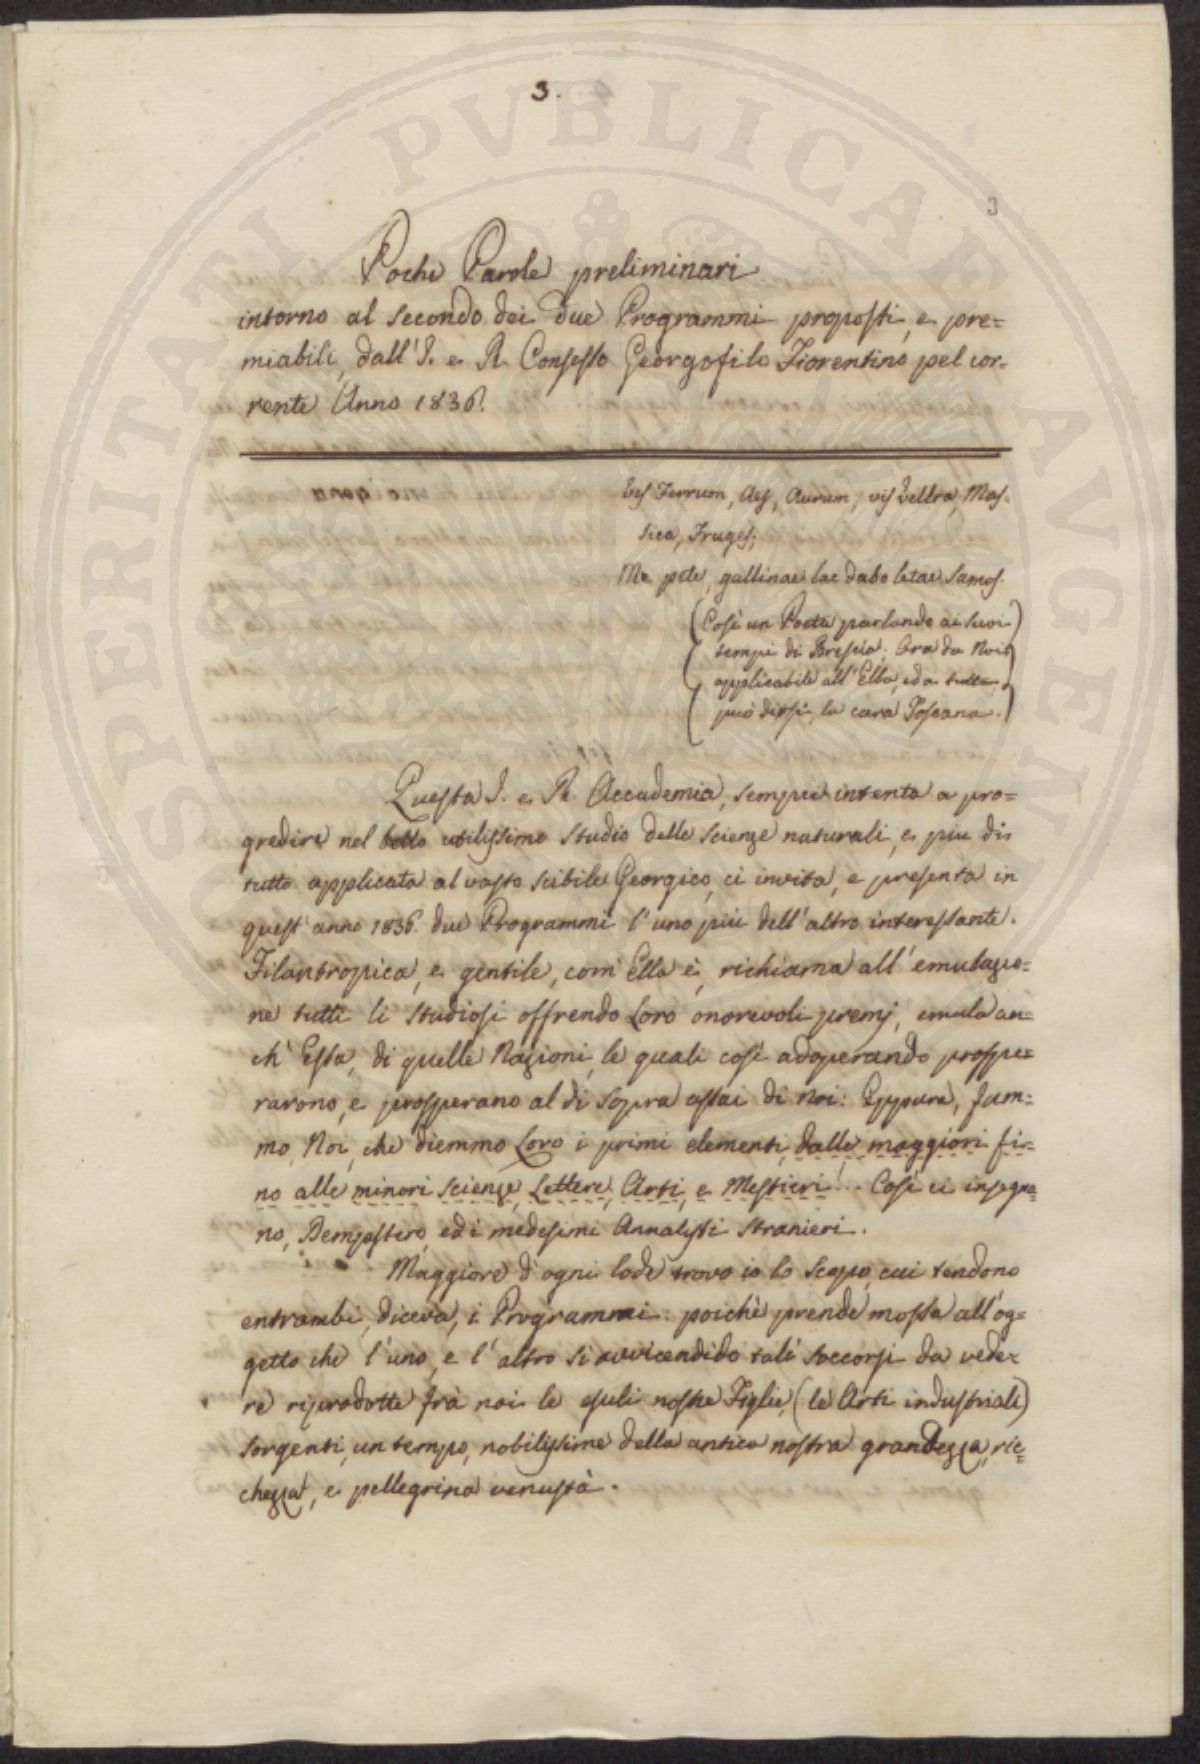 3.
3
Poche Parole preliminari
intorno al secondo dei due Programmi proposti, e pre=
miabili, dall'I. e R. Consesso Georgofilo Fiorentino pel cor=
rente Anno 1836.
Vis Ferrum, Aes, Aurum; vis Vellra, Mas-
sica, Fruges;
Me pete, gallinae lac dabo letae Samos.
(Così un Poeta parlando ai suoi)
tempi di Brescia. Ora da Noi
applicabile all'Elba, ed a tutta,
può dirsi, la cara Toscana.)
Questa I. e R. Accademia, sempre intenta a pro=
gredire nel bello utilissimo studio delle scienze naturali, e più di
tutto applicata al vasto scibile Georgico, ci invita, e presenta in
quest'anno 1836. due Programmi l'uno più dell'altro interessante.
Filantropica, e gentile, com'Ella è, richiama all'emulazio=
ne tutti li studiosi offrendo Loro onorevoli premj, emula an=
ch'Essa, di quelle Nazioni, le quali così adoperando prospe=
rarono, e prosperano al di sopra assai di noi: Eppure, fum=
mo Noi, che diemmo Loro i primi elementi, dalle maggiori fi=
no alle minori scienze, Lettere, Arti, e Mestieri!... Così ci insegna=
no, Dempstero, ed i medesimi Annalisti stranieri.
Maggiore d'ogni lode trovo io lo scopo, cui tendono
entrambi, diceva, i Programmi: poichè prende mossa all'og=
getto che l'uno, e l'altro si avvicendido tali soccorsi da vede=
re riprodotte frà noi le esuli nostre Figlie, (le Arti industriali)
sorgenti, un tempo, nobilissime della antica nostra grandezza, ric=
chezza, e pellegrina venustà.
SPERITATI PVBLICAE AVGEN